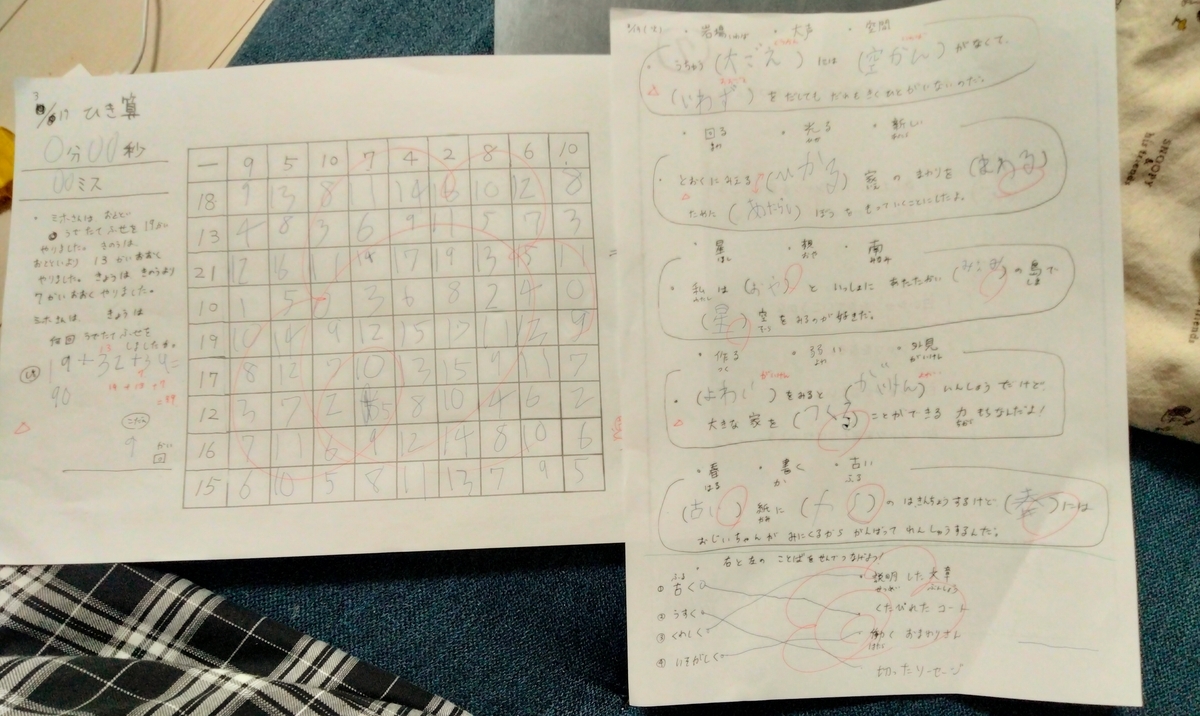 3/17 ひき算
0分00秒
00ミス
ミオさんは おととい
うでたてふせを 19かい
やりました。きのうは、
おとといより 13かいおおく
やりました。きょうは きのうより
7かいおおく やりました。
ミオさんは、きょうは
何回 うでたてふせを
しましたか。
19+32+39=
90
19+13+7
こたえ
9 かい
回
− 9 5 10 7 4 2 8 6 10
18 9 13 8 11 14 16 10 12 8
13 4 8 3 6 9 11 5 7 3
21 12 16 11 14 17 19 13 15 11
10 1 5 0 3 6 8 2 4 0
19 10 14 9 12 15 17 11 13 9
17 8 12 7 10 13 15 9 11 7
12 3 7 2 5 8 10 4 6 2
16 7 11 6 9 12 14 8 10 6
15 6 10 5 8 11 13 7 9 5
・岩場 ・大声 ・空間
うちゅう(大ごえ)には(空かん)がなくて、
(いわず)をだしても だれもきく ひとがいないのだ。
・回る ・光る ・新しい
とおくにみえる(ひかる)家の まわりを(まわる)
ために(あたらしい)
・星 ほし ・親 おや ・南 みなみ
私は(おや)と いっしょに あたたかい(みなみ)の島で
(星)空をみるのが好きだ。
・作る つく ・弱い よわ ・外見 がいけん
(よわい)をみると(がいけん)いんしょうだけど、
大きな 家を(つくる)ことができる 力もちなんだよ!
・春 はる ・書く か ・古い ふる
(古い)紙に(かく)の はきんちょうするけど(春)には
おじいちゃんが みにくるから がんばって れんしゅうするんだ。
・右と左の ことばをせんでつなげよう!
① 古く ふる
② うすく
③ くわしく
④ いそがしく
・説明した文章
・くたびれた コート
・働く おまわりさん
切ったソーセージ
SNOOPY